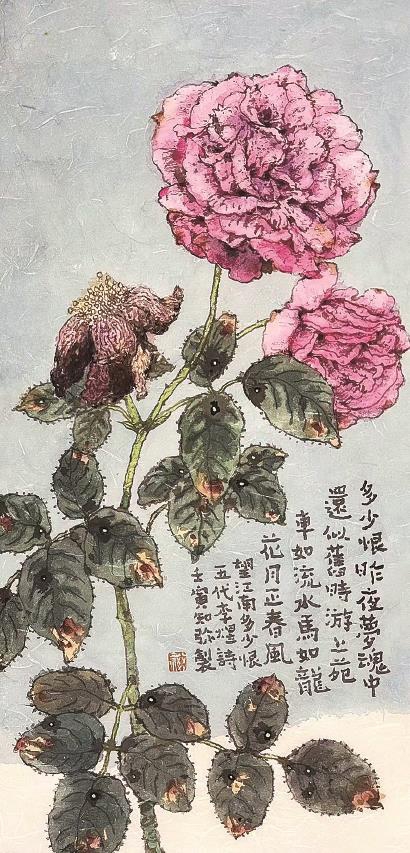 多少恨昨夜夢魂中
還似舊時游上苑
車如流水馬如龍
花月正春風
望江南多少恨
五代李煜詩
壬寅知歐製